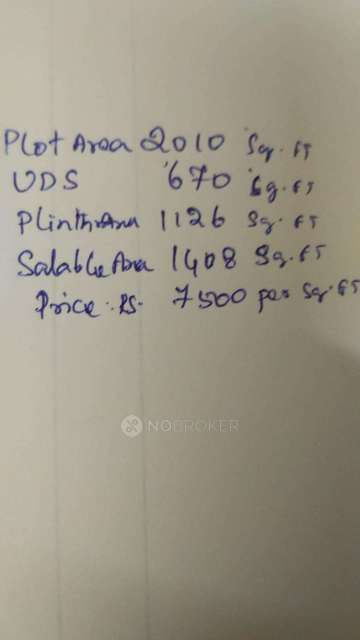 Plot Area 2010 Sq. FT
UDS 670 Sq. FT
Plinth Area 1126 Sq. FT
Salable Area 1408 Sq. FT
Price: RS. 7500 per Sq. FT
NOBROKER